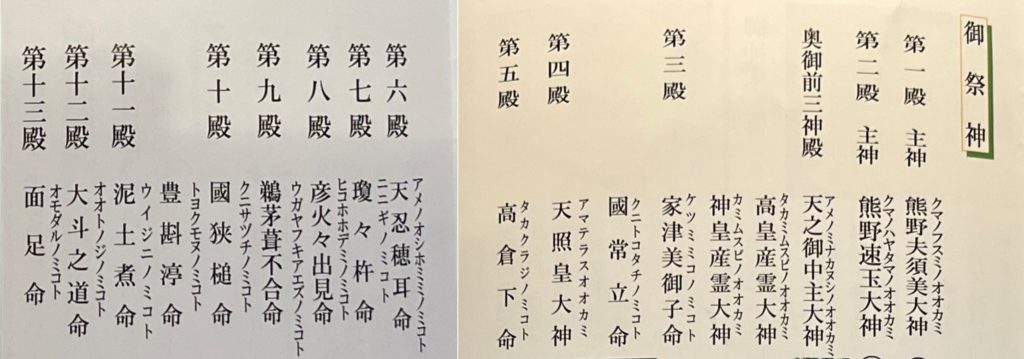 御祭神
第一殿 主神 熊野夫須美大神
クマノフスミノオオカミ
第二殿 主神 熊野速玉大神
クマノハヤタマノオオカミ
奥御前三神殿 天之御中主大神
アメノミナカヌシノオオカミ
高皇産霊大神
タカミムスビノオオカミ
神皇産霊大神
カミムスビノオオカミ
第三殿 家津美御子命
ケツミミコノミコト
國常立命
クニトコタチノミコト
第四殿 天照皇大神
アマテラスオオカミ
第五殿 高倉下命
タカクラジノミコト
第六殿 天忍穂耳命
アメノオシホミミノミコト
第七殿 瓊々杵命
ニニギノミコト
第八殿 彦火々出見命
ヒコホホデミノミコト
第九殿 鵜茅葺不合命
ウガヤフキアエズノミコト
第十殿 國狭槌命
クニサヅチノミコト
豊斟渟命
トヨクモヌノミコト
第十一殿 泥土煮命
ウイジニノミコト
第十二殿 大斗之道命
オオトノジノミコト
第十三殿 面足命
オモダルノミコト